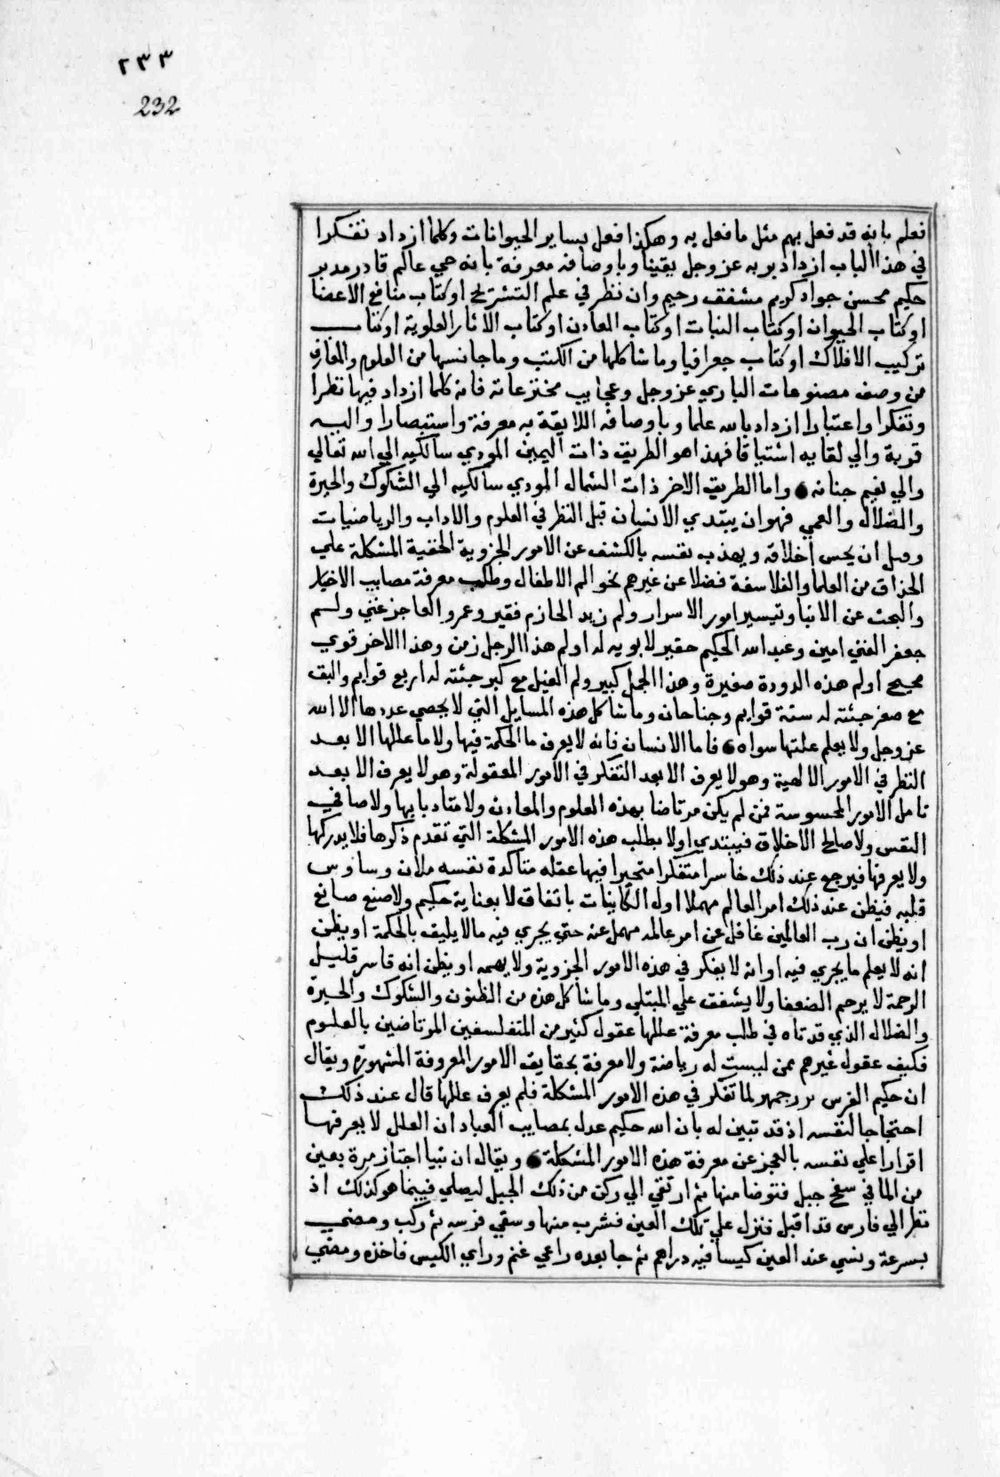 ٢٣٣
232
فعلم بانه قد فعل بهم مثل ما فعل به وهكذا فعل بساير الحيوانات وكلما ازداد تفكرا
في هذا الباب ازداد بربه عز وجل يقينا وباوصافه معرفة بانه حي عالم قادر مدبر
حكيم محسن جواد كريم مشفق رحيم وان نظر في علم التشريح او كتاب منافع الاعضا
او كتاب الحيوان او كتاب النبات او كتاب المعادن او كتاب الاثار العلوية او كتاب
تركيب الافلاك او كتاب جعرافيا وما شاكلها من الكتب وما جانسها من العلوم والمعارف
من وصف مصنوعات الباري عز وجل وعجايب مخترعاته فانه كلما ازداد فيها نظرا
وتفكرا واعتبارا ازداد بالله علما وباوصافه اللايقة به معرفة واستبصارا واليه
قربة والي لقايه اشتياقا فهذا هو الطريق ذات اليمين المودي سالكيه الي الله تعالي
والي نعيم جنانه واما الطريق الاخر ذات الشمال المودي سالكيه الي الشكوك والحيرة
والضلال والعمي فهو ان يبتدي الانسان قبل النظر في العلوم والاداب والرياضيات
وقبل ان يحسن اخلاقه ويهذب نفسه بالكشف عن الامور الجزوية الخفية المشكلة علي
الحذاق من العلما والفلاسفة فضلا عن غيرهم نحو الم الاطفال وطلب معرفة مصايب الاخيار
والبحث عن الانبا وتيسير امور الاسرار ولم زيد الحازم فقير وعمرو العاجز غني ولم
جعفر الغني امين وعبد الله الحكيم حقير لا بويه له او لم هذا الرجل زمن وهذا الاخر قوي
صحيح او لم هذه الدودة صغيرة وهذا الجمل كبير ولم الفيل مع كبر جثته له اربع قوايم والبق
مع صغر جثته له ستة قوايم وجناحان وما شاكل هذه المسايل التي لا يحصي عددها الا الله
عز وجل ولا يعلم علتها سواه فاما الانسان فانه لا يعرف ما الحكمة فيها ولا ما عللها الا بعد
النظر في الامور الالهية وهو لا يعرف الا بعد التفكر في الامور المعقولة وهو لا يعرف الا بعد
تامل الامور المحسوسة فمن لم يكن مرتاضا بهذه العلوم والمعادن ولا متادبا بها ولا صافي
النفس ولا صالح الاخلاق فيبتدي اولا بطلب هذه الامور المشكلة التي تقدم ذكرها فلا يدركها
ولا يعرفها فيرجع عند ذلك خاسرا متفكرا متحيرا فيها عقله متاكدة نفسه ملان وساوس
قلبه فيظن عند ذلك امر العالم مهملا اول الكاينات باتفاق لا بعناية حكيم ولا صنع صانع
او يظن ان رب العالمين غافل عن امر عالمه مهمل عنه حتي يجري فيه ما لا يليق بالحكمة او يظن
انه لا يعلم ما يجري فيه او انه لا يفكر في هذه الامور الجزوية ولا يهمه او يظن انه قاسر قليل
الرحمة لا يرحم الضعفا ولا يشفق علي المبتلي وما شاكل هذه من الظنون والشكوك والحيرة
والضلال الذي قد تاه في طلب معرفة عللها عقول كثير من المتفلسفين المرتاضين بالعلوم
فكيف عقول غيرهم ممن ليست له رياضة ولا معرفة بحقايق الامور المعروفة المشهورة ويقال
ان حكيم الفرس بزرجمهر لما تفكر في هذه الامور المشكلة فلم يعرف عللها قال عند ذلك
احتجاجا لنفسه اذ قد تبين له بان الله حكيم عدل بمصايب العباد ان العلل لا يعرفها
اقرارا علي نفسه بالعجز عن معرفة هذه الامور المشكلة ويقال ان نبيا اجتاز مرة بعين
من الما في سفح جبل فتوضا منها ثم ارتقي الي ركن من ذلك الجبل ليصلي فبينما هو كذلك اذ
نظر الي فارس قد اقبل فنزل علي تلك العين فشرب منها وسقي فرسه ثم ركب ومضي
بسرعة ونسي عند العين كيسا فيه دراهم ثم جا بعده راعي غنم وراي الكيس فاخذه ومضي